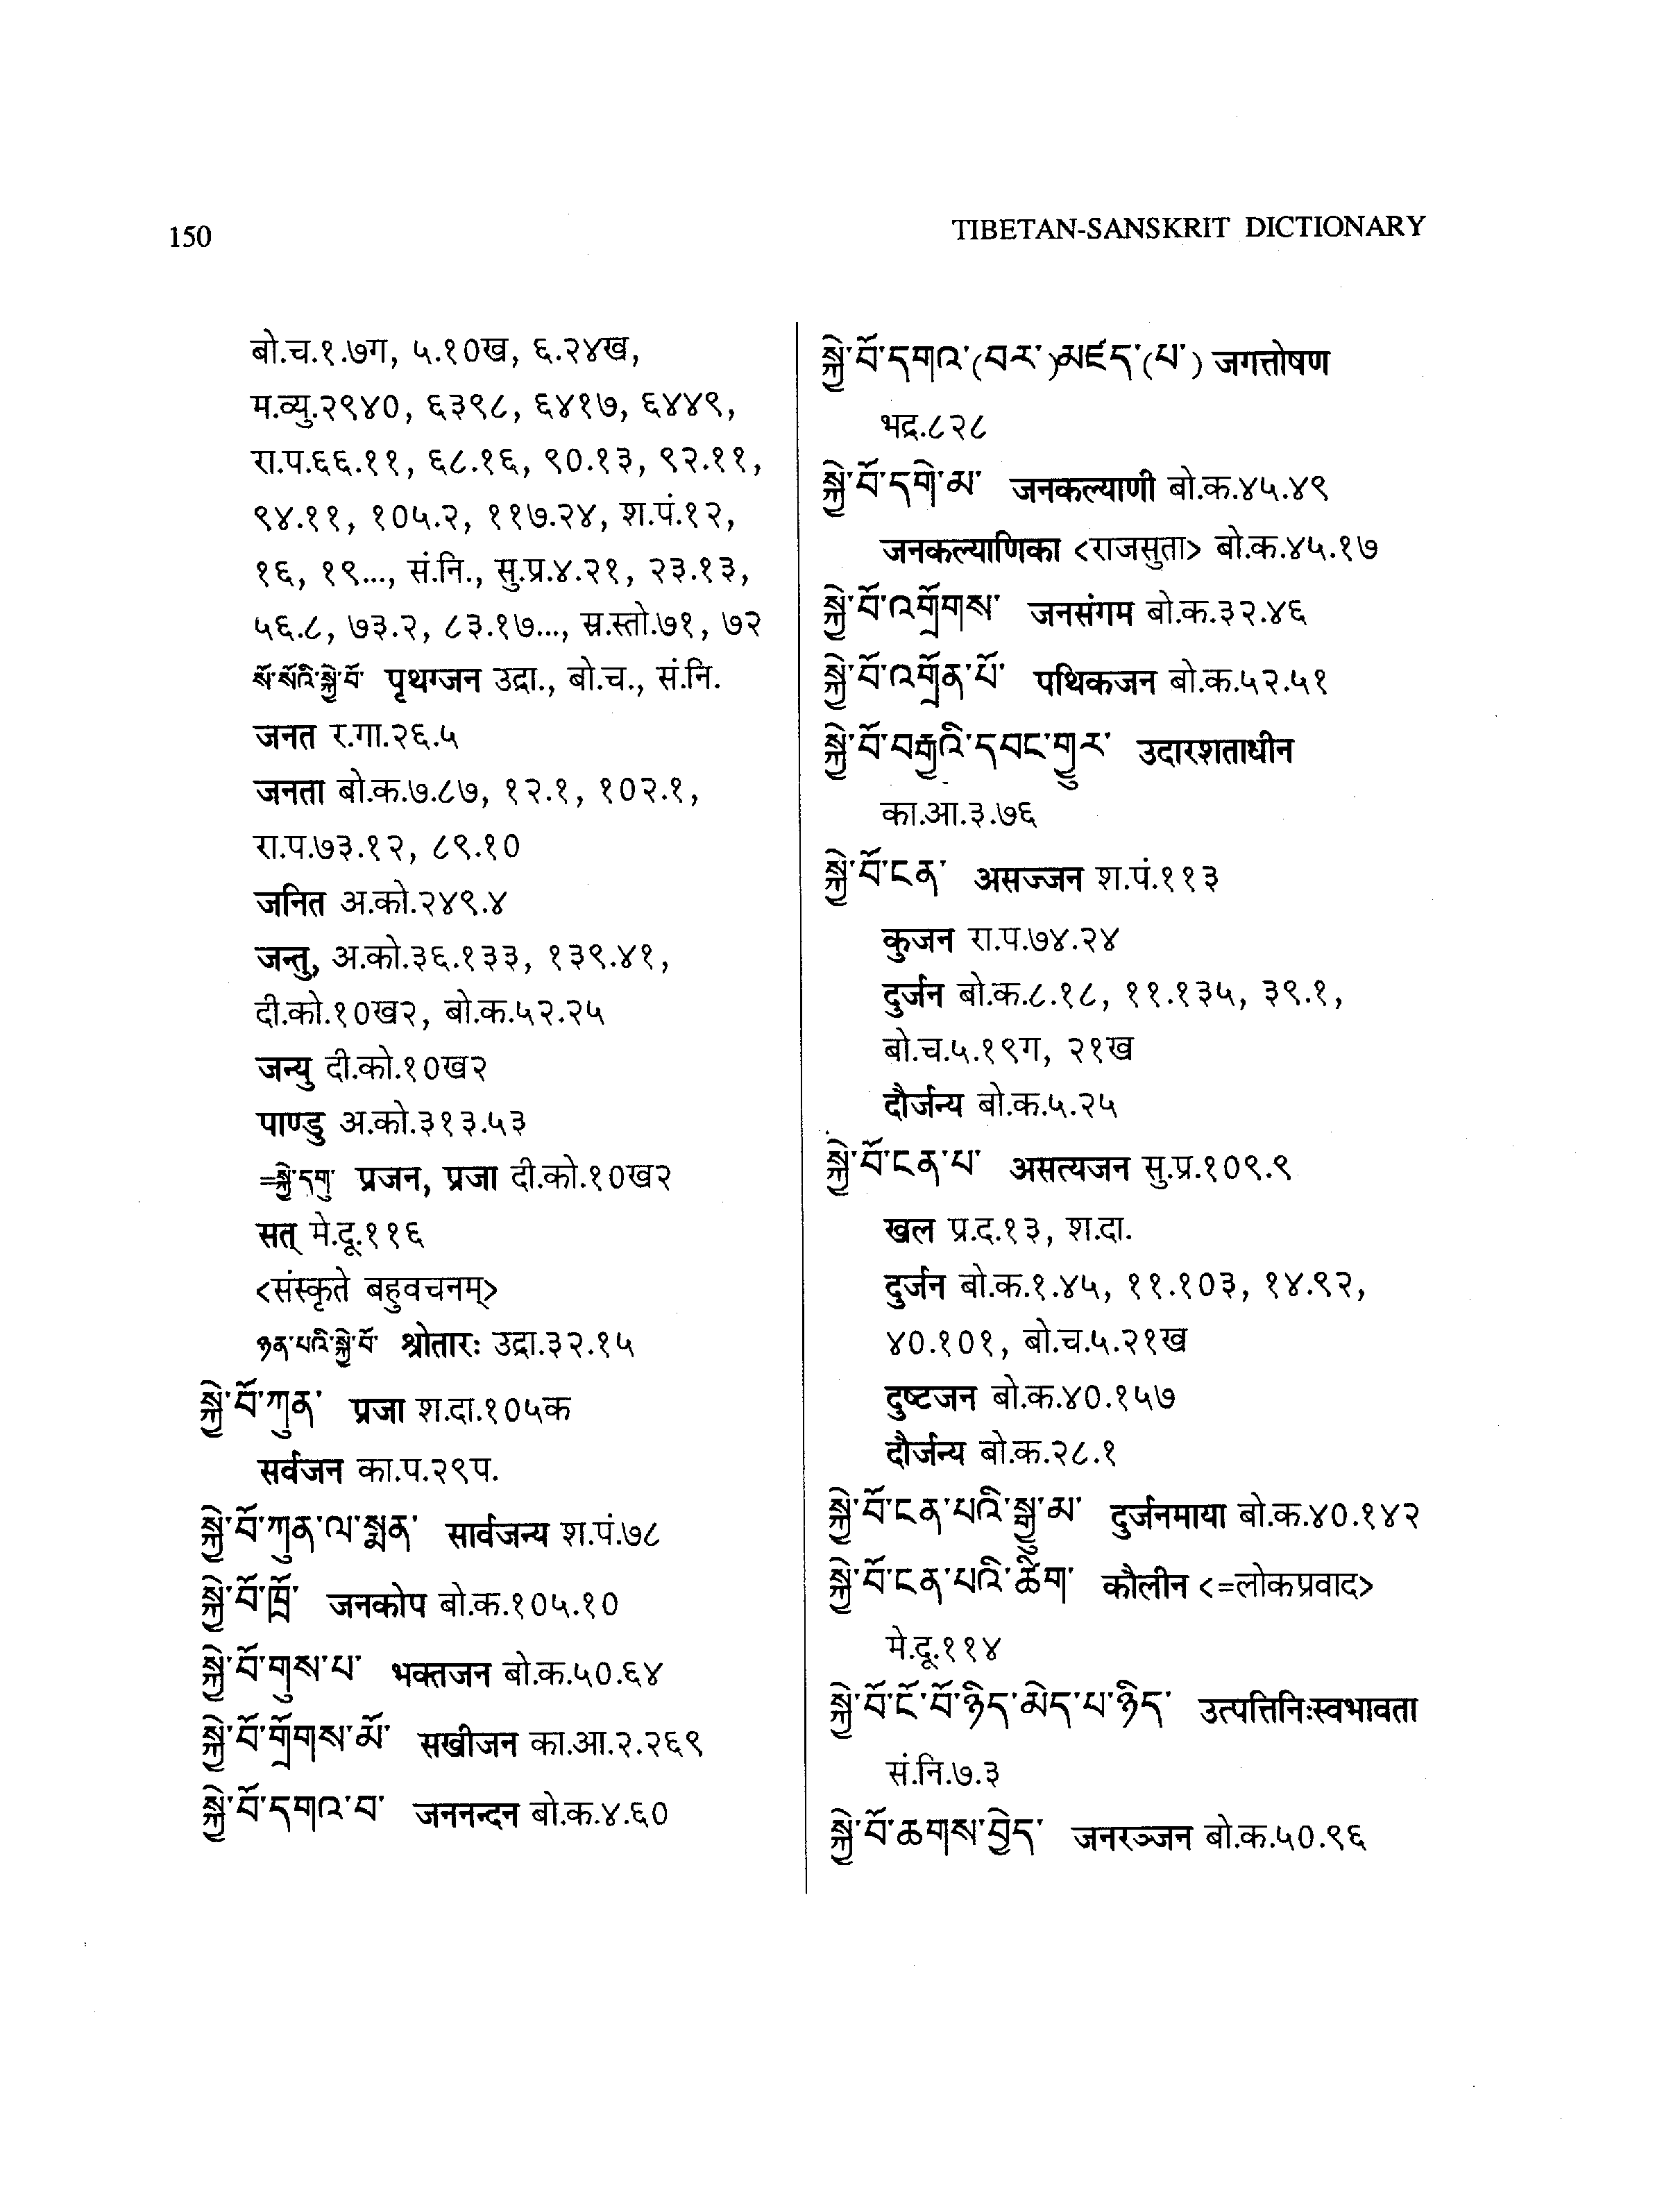 150
TIBETAN-SANSKRIT DICTIONARY
बो.च.१.७ग, ५.१०ख, ६.२४ख,
म.व्यु.२९४०, ६३९८, ६४१७, ६४४९,
रा.प.६६.११, ६८.१६, ९०.१३, ९२.११,
९४.११, १०५.२, ११७.२४, श.पं.१२,
१६, १९..., सं.नि., सु.प्र.४.२१, २३.१३,
५६.८, ७३.२, ८३.१७..., स्र.स्तो.७१, ७२
སོ་སོའི་སྐྱེ་བོ་ पृथग्जन उद्रा., बो.च., सं.नि.
जनत र.गा.२६.५
जनता बो.क.७.८७, १२.१, १०२.१,
रा.प.७३.१२, ८९.१०
जनित अ.को.२४९.४
जन्तु, अ.को.३६.१३३, १३९.४१,
दी.को.१०ख२, बो.क.५२.२५
जन्यु दी.को.१०ख२
पाण्डु अ.को.३१३.५३
=སྐྱེ་དགུ་ प्रजन, प्रजा दी.को.१०ख२
सत् मे.दू.११६
<संस्कृते बहुवचनम्>
ཉན་པའི་སྐྱེ་བོ་ श्रोतारः उद्रा.३२.१५
སྐྱེ་བོ་ཀུན་ प्रजा श.दा.१०५क
सर्वजन का.प.२९प.
སྐྱེ་བོ་ཀུན་ལ་སྨན་ सार्वजन्य श.पं.७८
སྐྱེ་བོ་ཁྲོ་ जनकोप बो.क.१०५.१०
སྐྱེ་བོ་གུས་པ་ भक्तजन बो.क.५०.६४
སྐྱེ་བོ་གྲོགས་མོ་ सखीजन का.आ.२.२६९
སྐྱེ་བོ་དགའ་བ་ जननन्दन बो.क.४.६०
སྐྱེ་བོ་དགའ་(བར་)མཛད་(པ་) जगत्तोषण
भद्र.८२८
སྐྱེ་བོ་དགེ་མ་ जनकल्याणी बो.क.४५.४९
जनकल्याणिका <राजसुता> बो.क.४५.१७
སྐྱེ་བོ་འགྲོགས་ जनसंगम बो.क.३२.४६
སྐྱེ་བོ་འགྲོན་པོ་ पथिकजन बो.क.५२.५१
སྐྱེ་བོ་བརྒྱའི་དབང་གྱུར་ उदारशताधीन
का.आ.३.७६
སྐྱེ་བོ་ངན་ असज्जन श.पं.११३
कुजन रा.प.७४.२४
दुर्जन बो.क.८.१८, ११.१३५, ३९.१,
बो.च.५.१९ग, २१ख
दौर्जन्य बो.क.५.२५
སྐྱེ་བོ་ངན་པ་ असत्यजन सु.प्र.१०९.९
खल प्र.द.१३, श.दा.
दुर्जन बो.क.१.४५, ११.१०३, १४.९२,
४०.१०१, बो.च.५.२१ख
दुष्टजन बो.क.४०.१५७
दौर्जन्य बो.क.२८.१
སྐྱེ་བོ་ངན་པའི་སྒྱུ་མ་ दुर्जनमाया बो.क.४०.१४२
སྐྱེ་བོ་ངན་པའི་ཚིག་ कौलीन <=लोकप्रवाद>
मे.दू.११४
སྐྱེ་བོ་ངོ་བོ་ཉིད་མེད་པ་ཉིད་ उत्पत्तिनिःस्वभावता
सं.नि.७.३
སྐྱེ་བོ་ཆགས་བྱེད་ जनरञ्जन बो.क.५०.९६